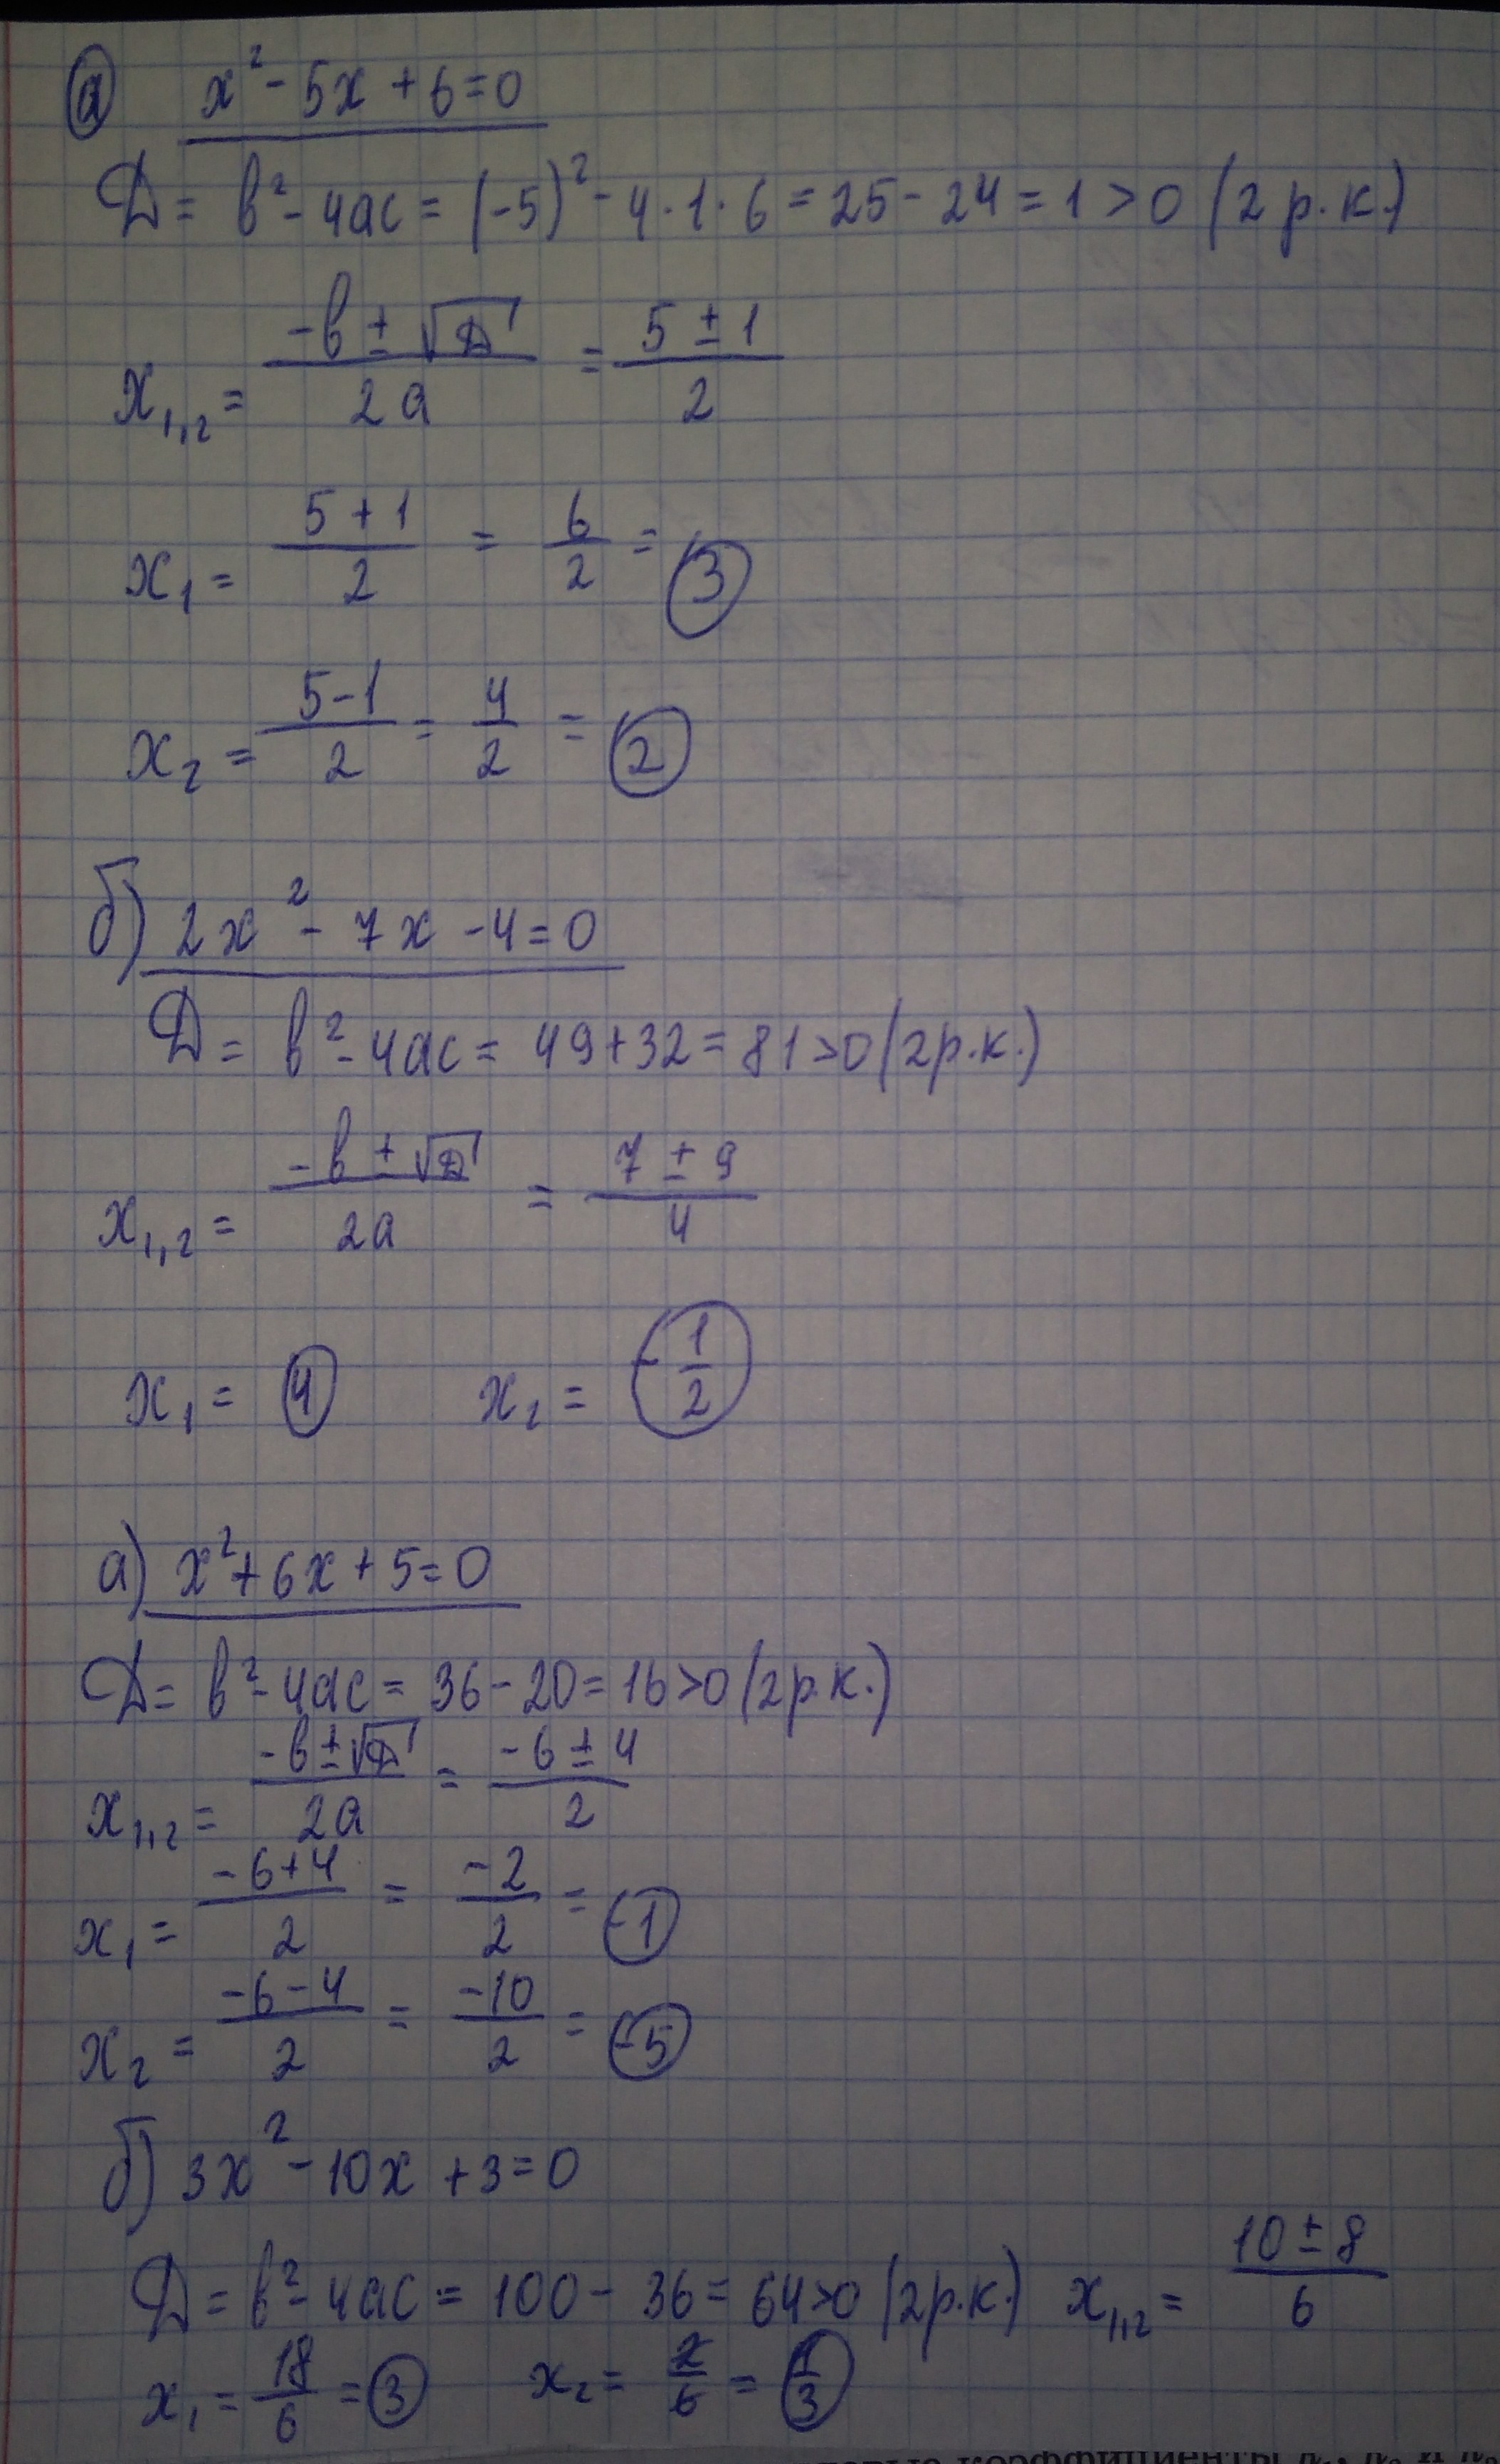 а) x² - 5x + 6 = 0
D = b² - 4ac = (-5)² - 4·1·6 = 25 - 24 = 1 > 0 (2 р.к.)
x₁,₂ = (-b ± √D)/(2a) = (5 ± 1)/2
x₁ = (5 + 1)/2 = 6/2 = 3
x₂ = (5 - 1)/2 = 4/2 = 2
б) 2x² - 7x - 4 = 0
D = b² - 4ac = 49 + 32 = 81 > 0 (2 р.к.)
x₁,₂ = (-b ± √D)/(2a) = (7 ± 9)/4
x₁ = 4 x₂ = -1/2
а) x² + 6x + 5 = 0
D = b² - 4ac = 36 - 20 = 16 > 0 (2 р.к.)
x₁,₂ = (-b ± √D)/(2a) = (-6 ± 4)/2
x₁ = (-6 + 4)/2 = -2/2 = -1
x₂ = (-6 - 4)/2 = -10/2 = -5
б) 3x² - 10x + 3 = 0
D = b² - 4ac = 100 - 36 = 64 > 0 (2 р.к.) x₁,₂ = (10 ± 8)/6
x₁ = 18/6 = 3 x₂ = 2/6 = 1/3
коэффициенты